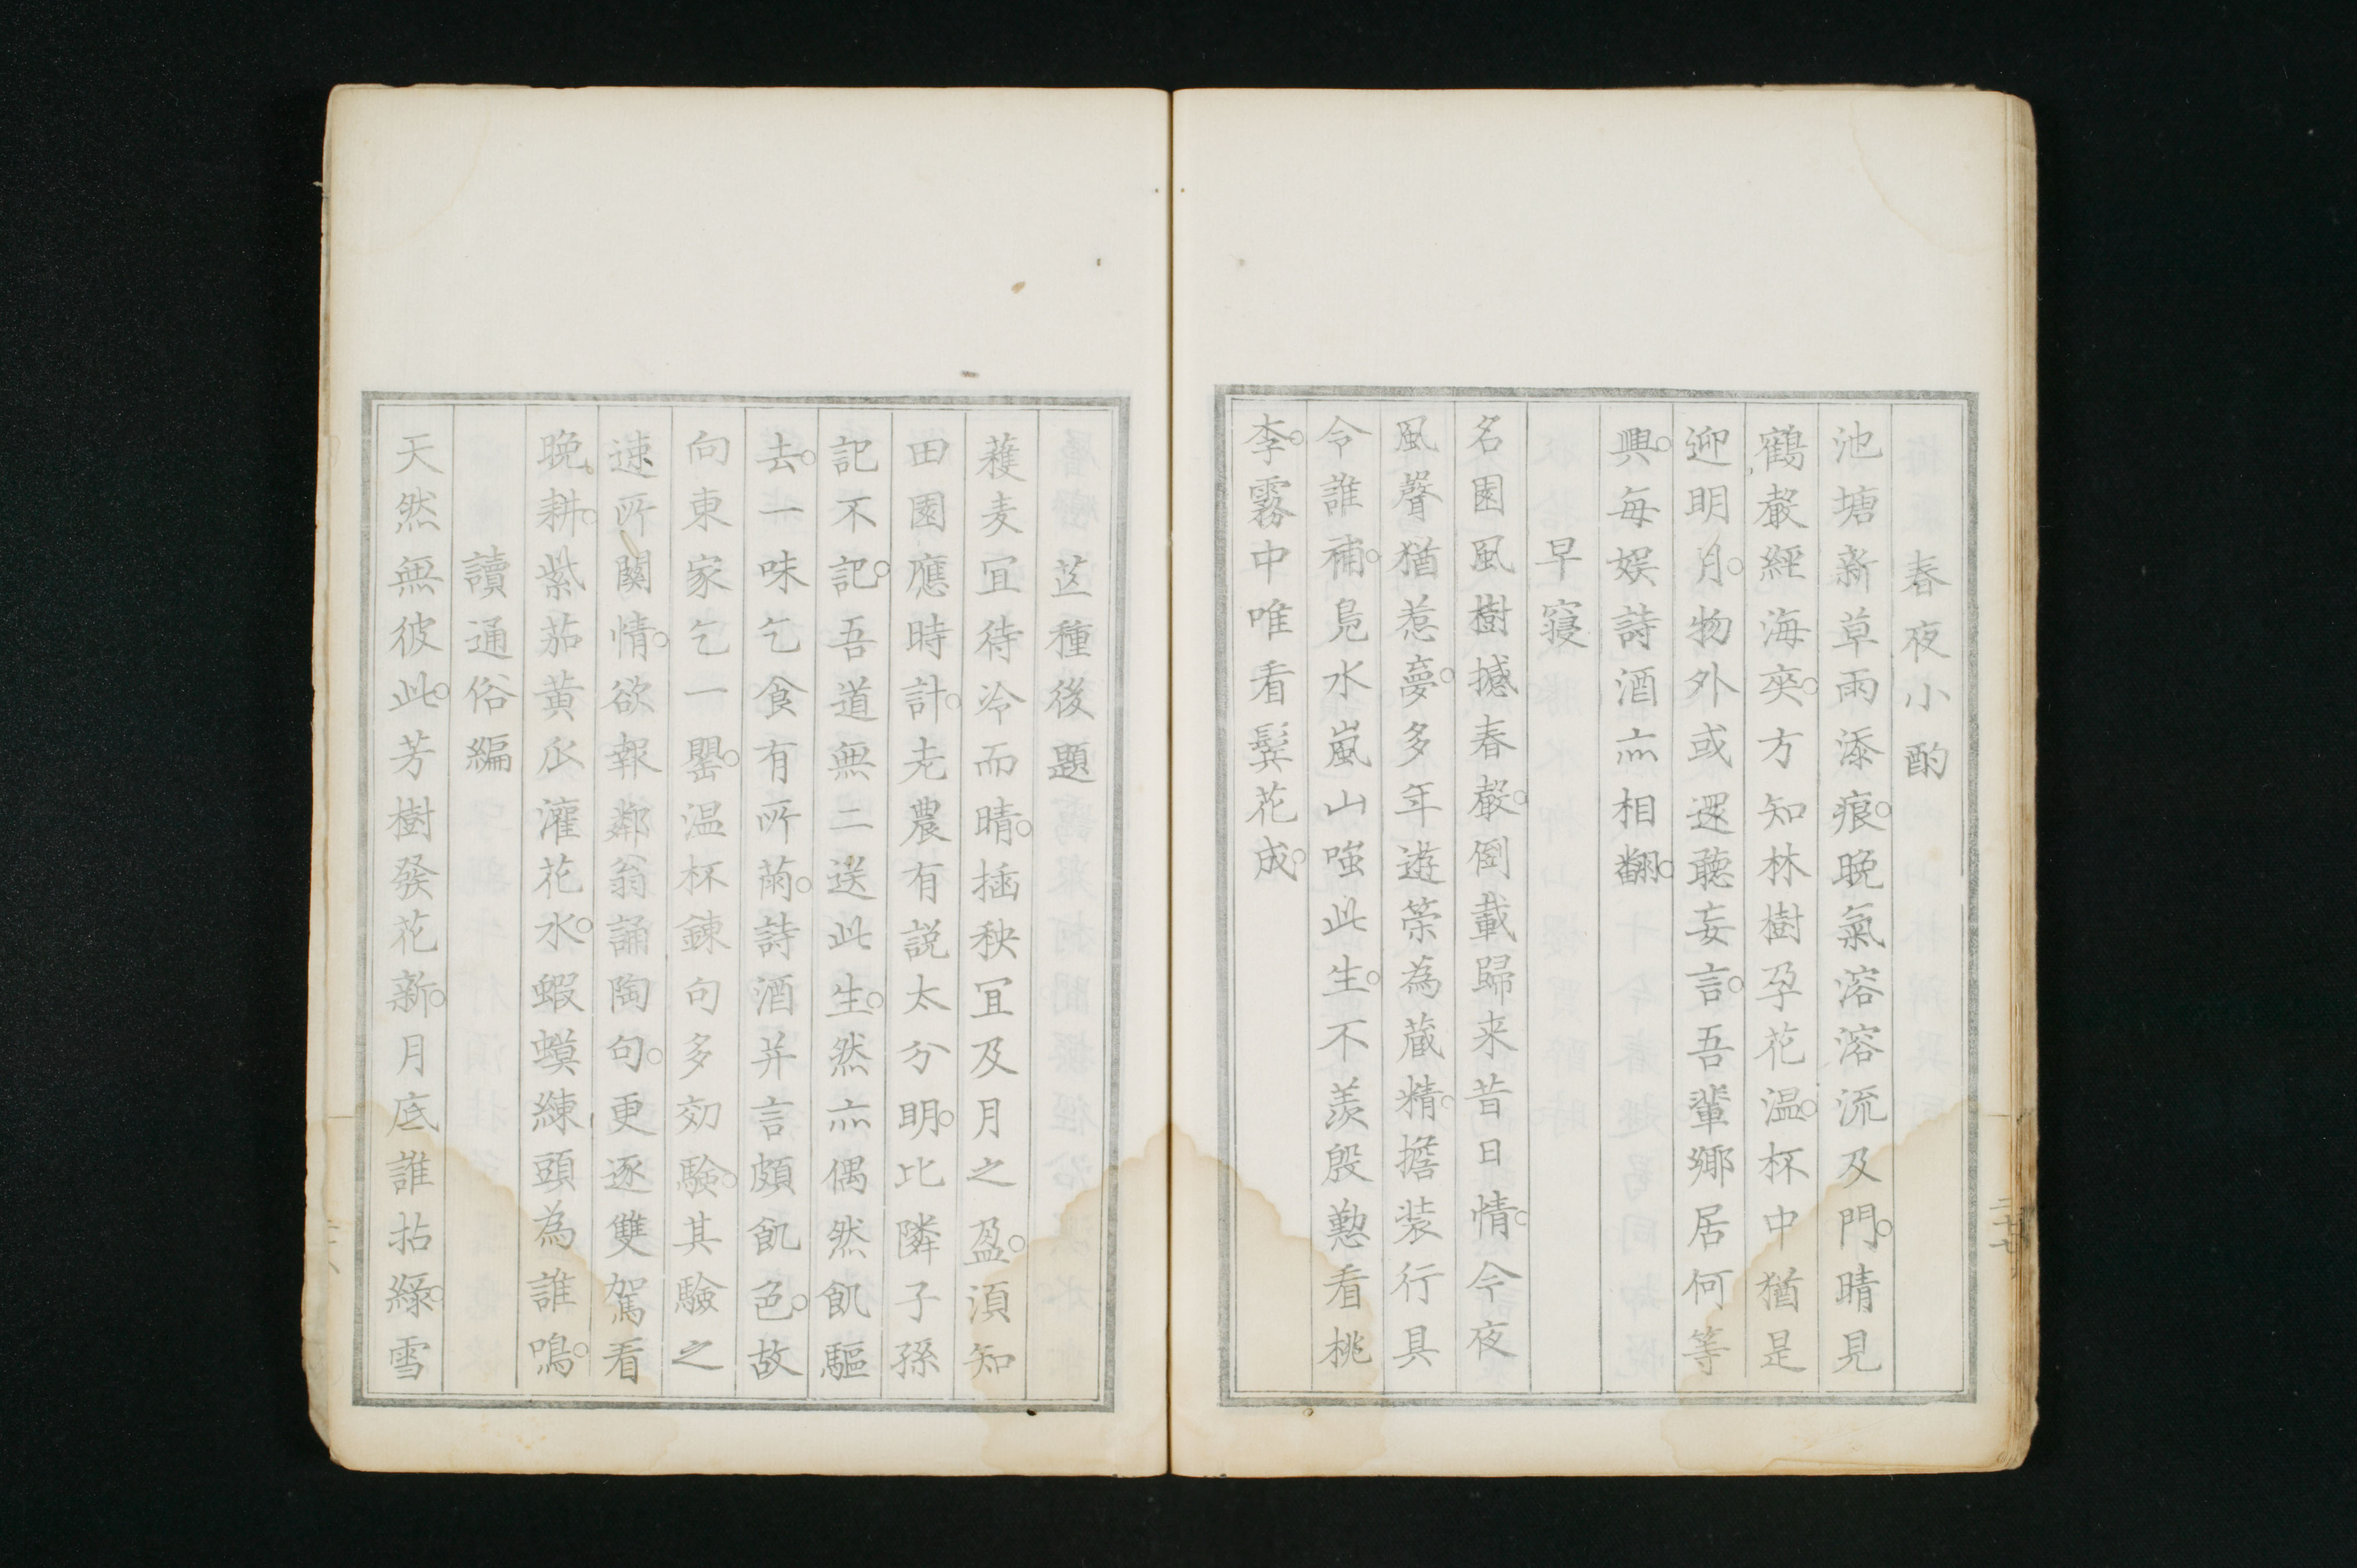 春夜小酌
池塘新草雨添痕○晩氣溶溶流及門○晴見
鶴聲經海突○方知林樹孕花温○杯中猶是
迎明月○物外或還聽妄言○吾輩鄉居何等
興○毎娯詩酒亦相翻○
早寢
名園風樹撼春聲○倒載歸来昔日情○今夜
風聲猶惹夢○多年遊篆為蔵精○擔装行具
令誰補○見水嵐山嗤此生○不羨殷懃看桃
李○霧中唯看鬓花成○
二十七
芒種後題
穫麦宜待冷而晴○挿秧宜及月之盈○湏知
田園應時計○老農有説太分明○比隣子孫
記不記○吾道無二送此生○然亦偶然飢驅
去○一味乞食有所萠○詩酒并言頗飢色○故
向東家乞一罌○温杯錬句多効驗○其驗之
速所關情○欲報鄰翁誦陶句○更逐雙駕看
晩耕○紫茄黄瓜灌花水○蝦蟆練頭為誰鳴○
讀通俗編
天然無彼此○芳樹發花新○月底誰拈緑○雪